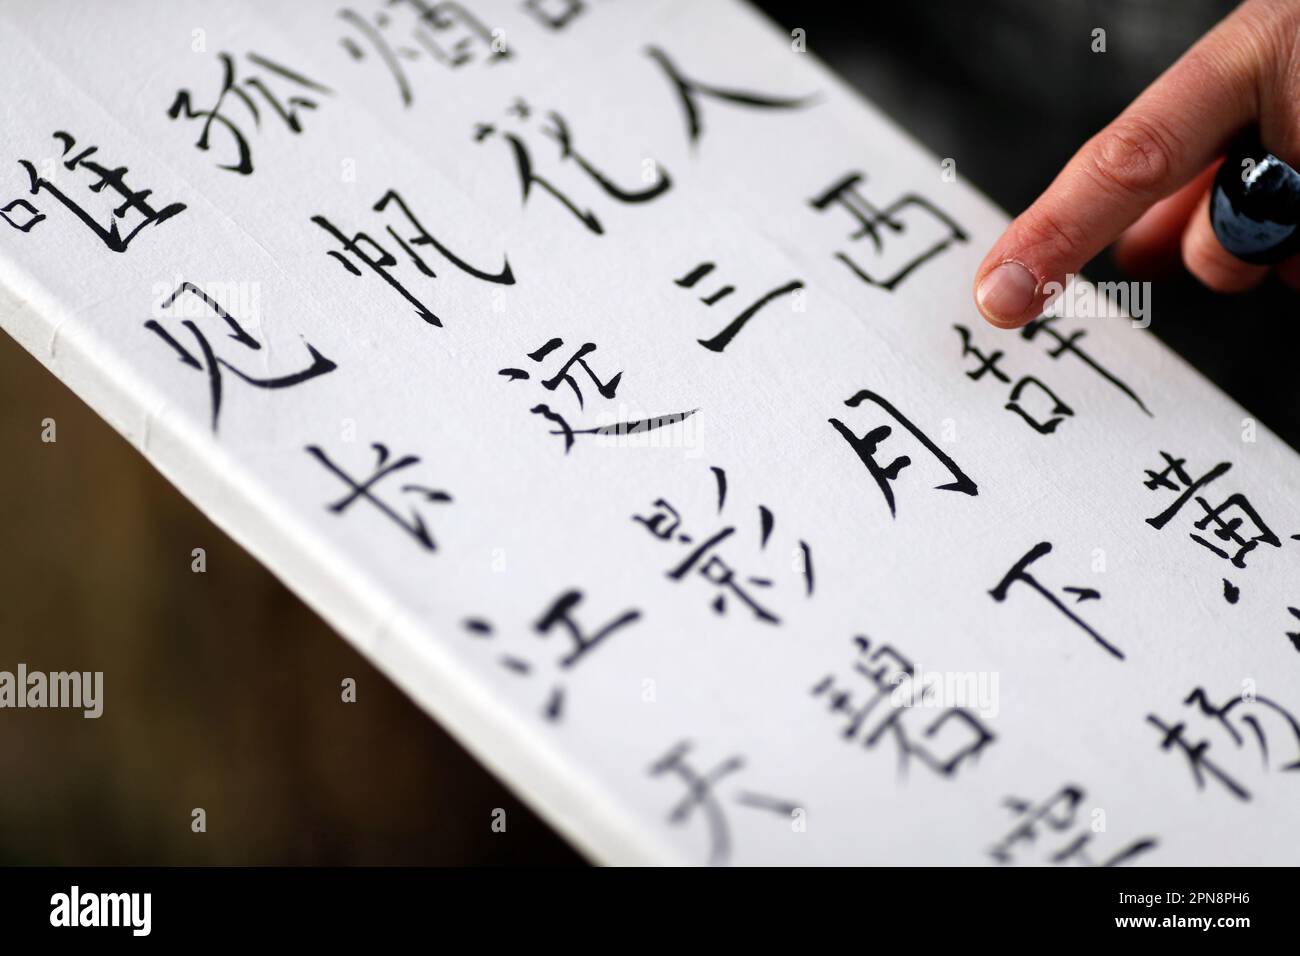 人西辞黄
烟花三月下杨
孤帆远影碧空
唯见长江天
alamy
alamy
Image ID: 2PN8PH6
www.alamy.com